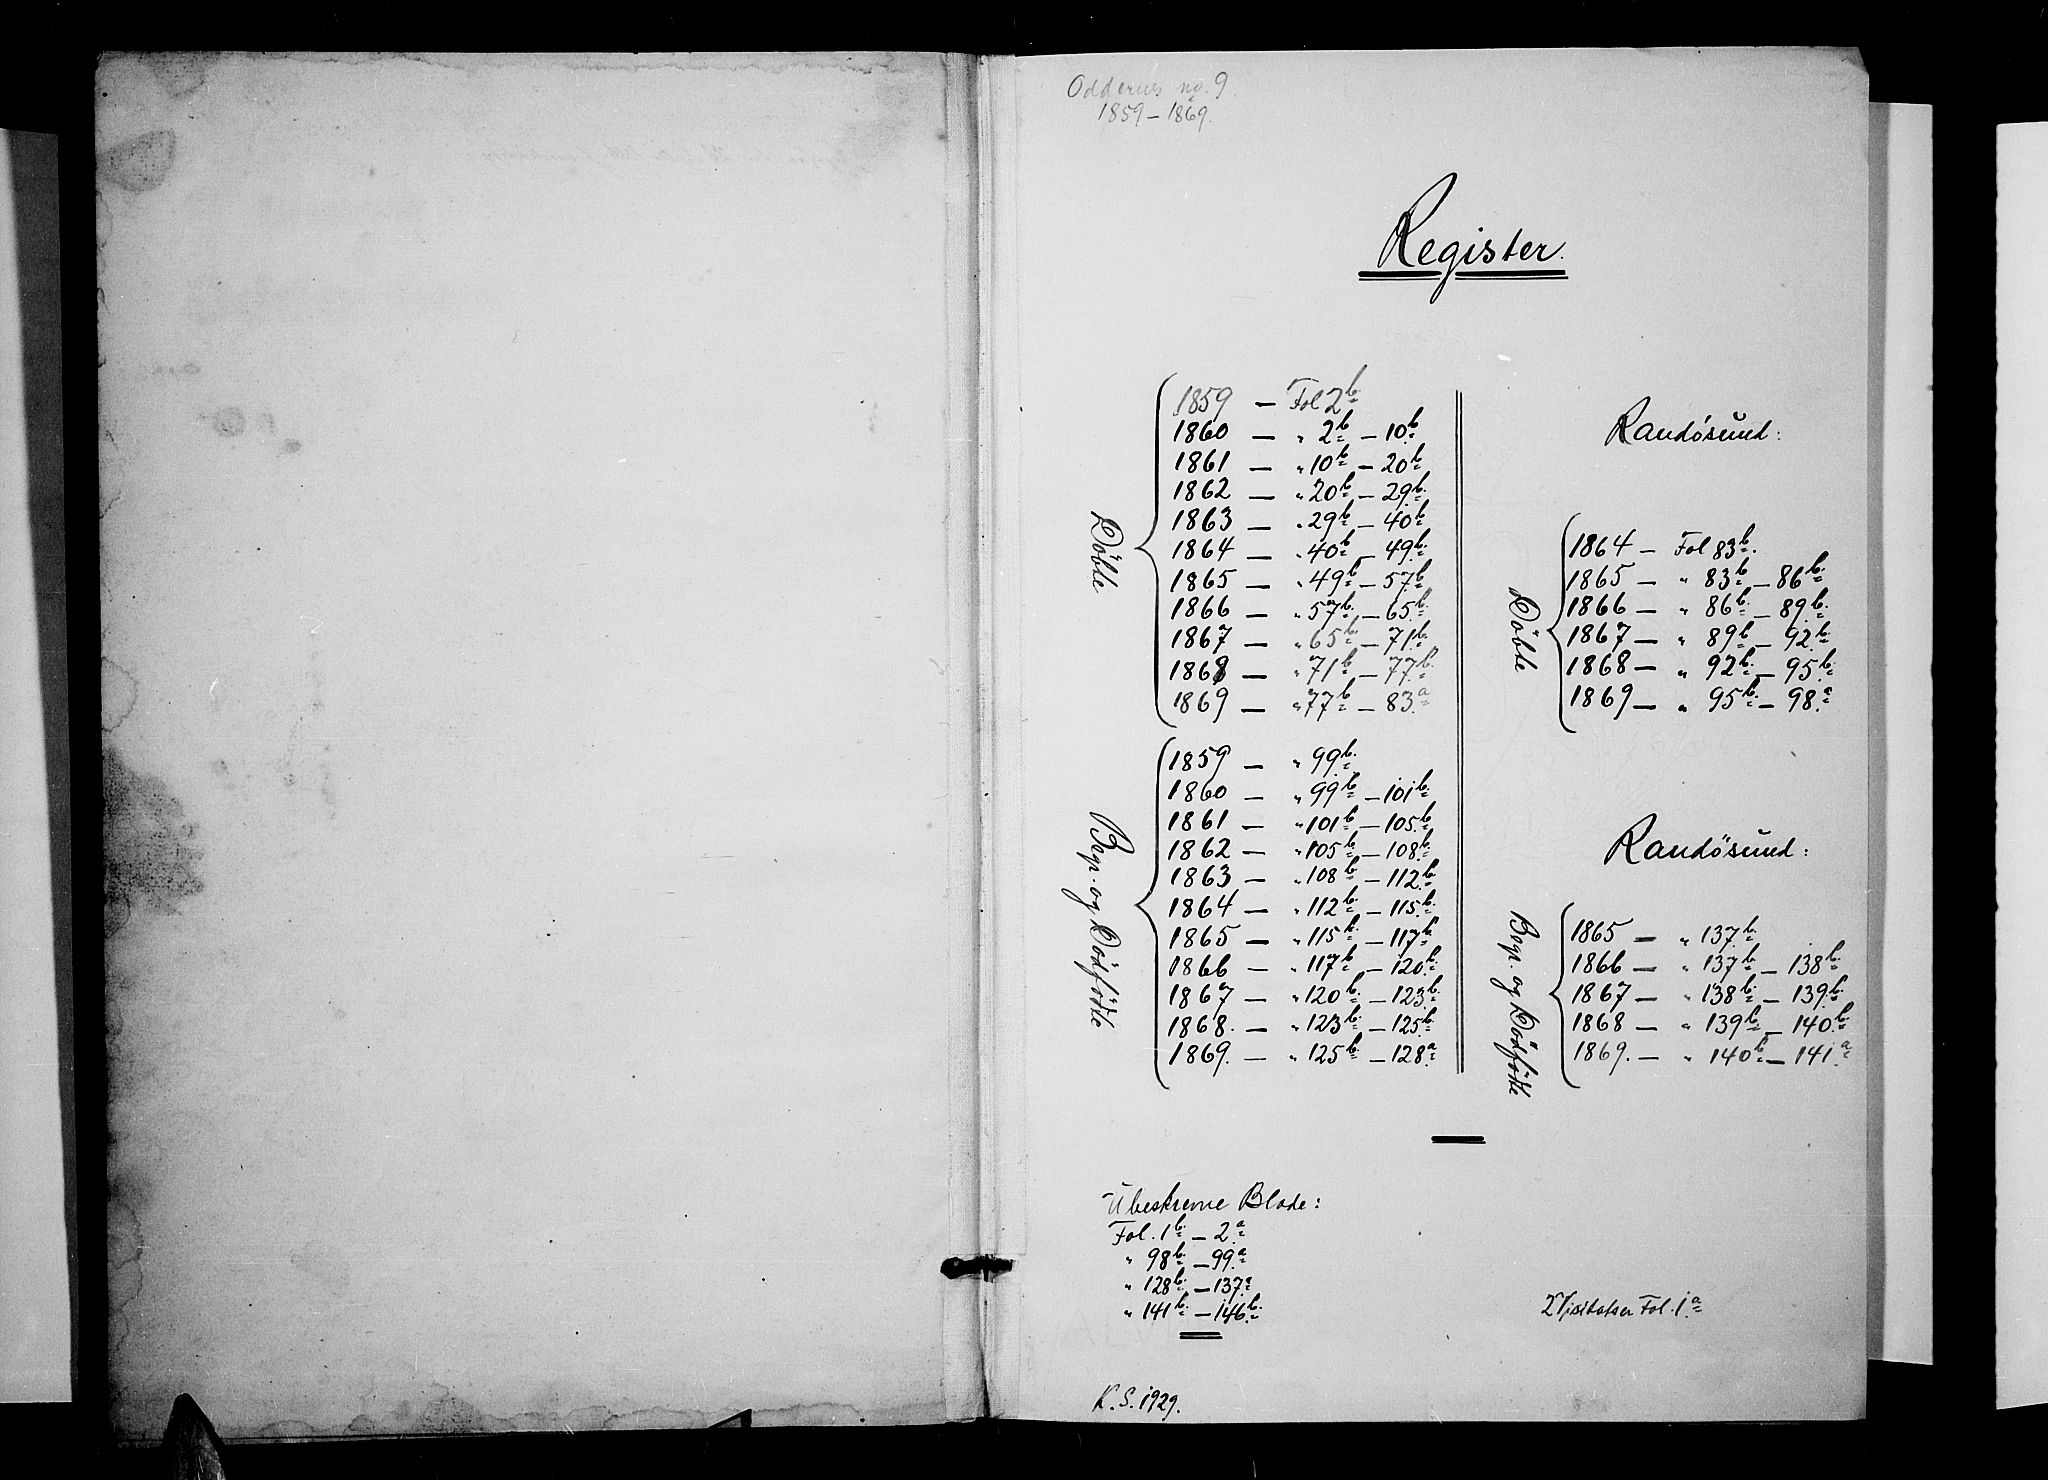 Oddernes no. 9.
1859 – 1869.
Register.
Döbte
1859 — Fol 2b
1860 — " 2b – 10b
1861 — " 10b – 20b
1862 — " 20b – 29b
1863 — " 29b – 40b
1864 — " 40b – 49b
1865 — " 49b – 57b
1866 — " 57b – 65b
1867 — " 65b – 71b
1868 — " 71b – 77b
1869 — " 77b – 83a
Begr. og Dödfödte
1859 — " 99b
1860 — " 99b – 101b
1861 — " 101b – 105b
1862 — " 105b – 108b
1863 — " 108b – 112b
1864 — " 112b – 115b
1865 — " 115b – 117b
1866 — " 117b – 120b
1867 — " 120b – 123b
1868. — " 123b – 125b
1869. — " 125b – 128a
Randösund:
Döbte
1864 — Fol 83b.
1865 — " 83b – 86b
1866 — " 86b – 89b
1867 — " 89b – 92b
1868 — " 92b – 95b
1869 — " 95b – 98a
Randösund:
Begr. og Dödfödte
1865 — " 137b
1866 — " 137b – 138b
1867 — " 138b – 139b
1868 — " 139b – 140b
1869. — " 140b – 141a
Ubeskrevne Blade:
Fol. 1b – 2a
" 98b – 99a
" 128b – 137a
" 141b – 146b
Visitatser Fol. 1a
K. S. 1929.